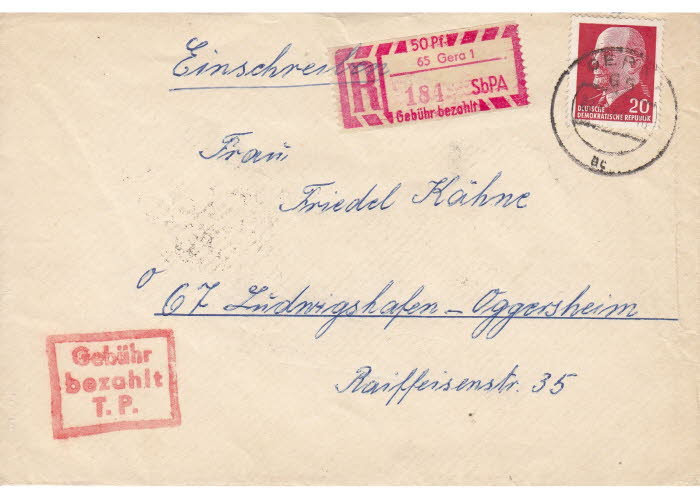 Einschreiben
50 Pf.
65 Gera 1
R
184
SbPA
Gebühr bezahlt
20
DEUTSCHE
DEMOKRATISCHE REPUBLIK
Frau
Friedel Kähne
67 Ludwigshafen - Oggersheim
Raiffeisenstr. 35
Gebühr
bezahlt
T. P.